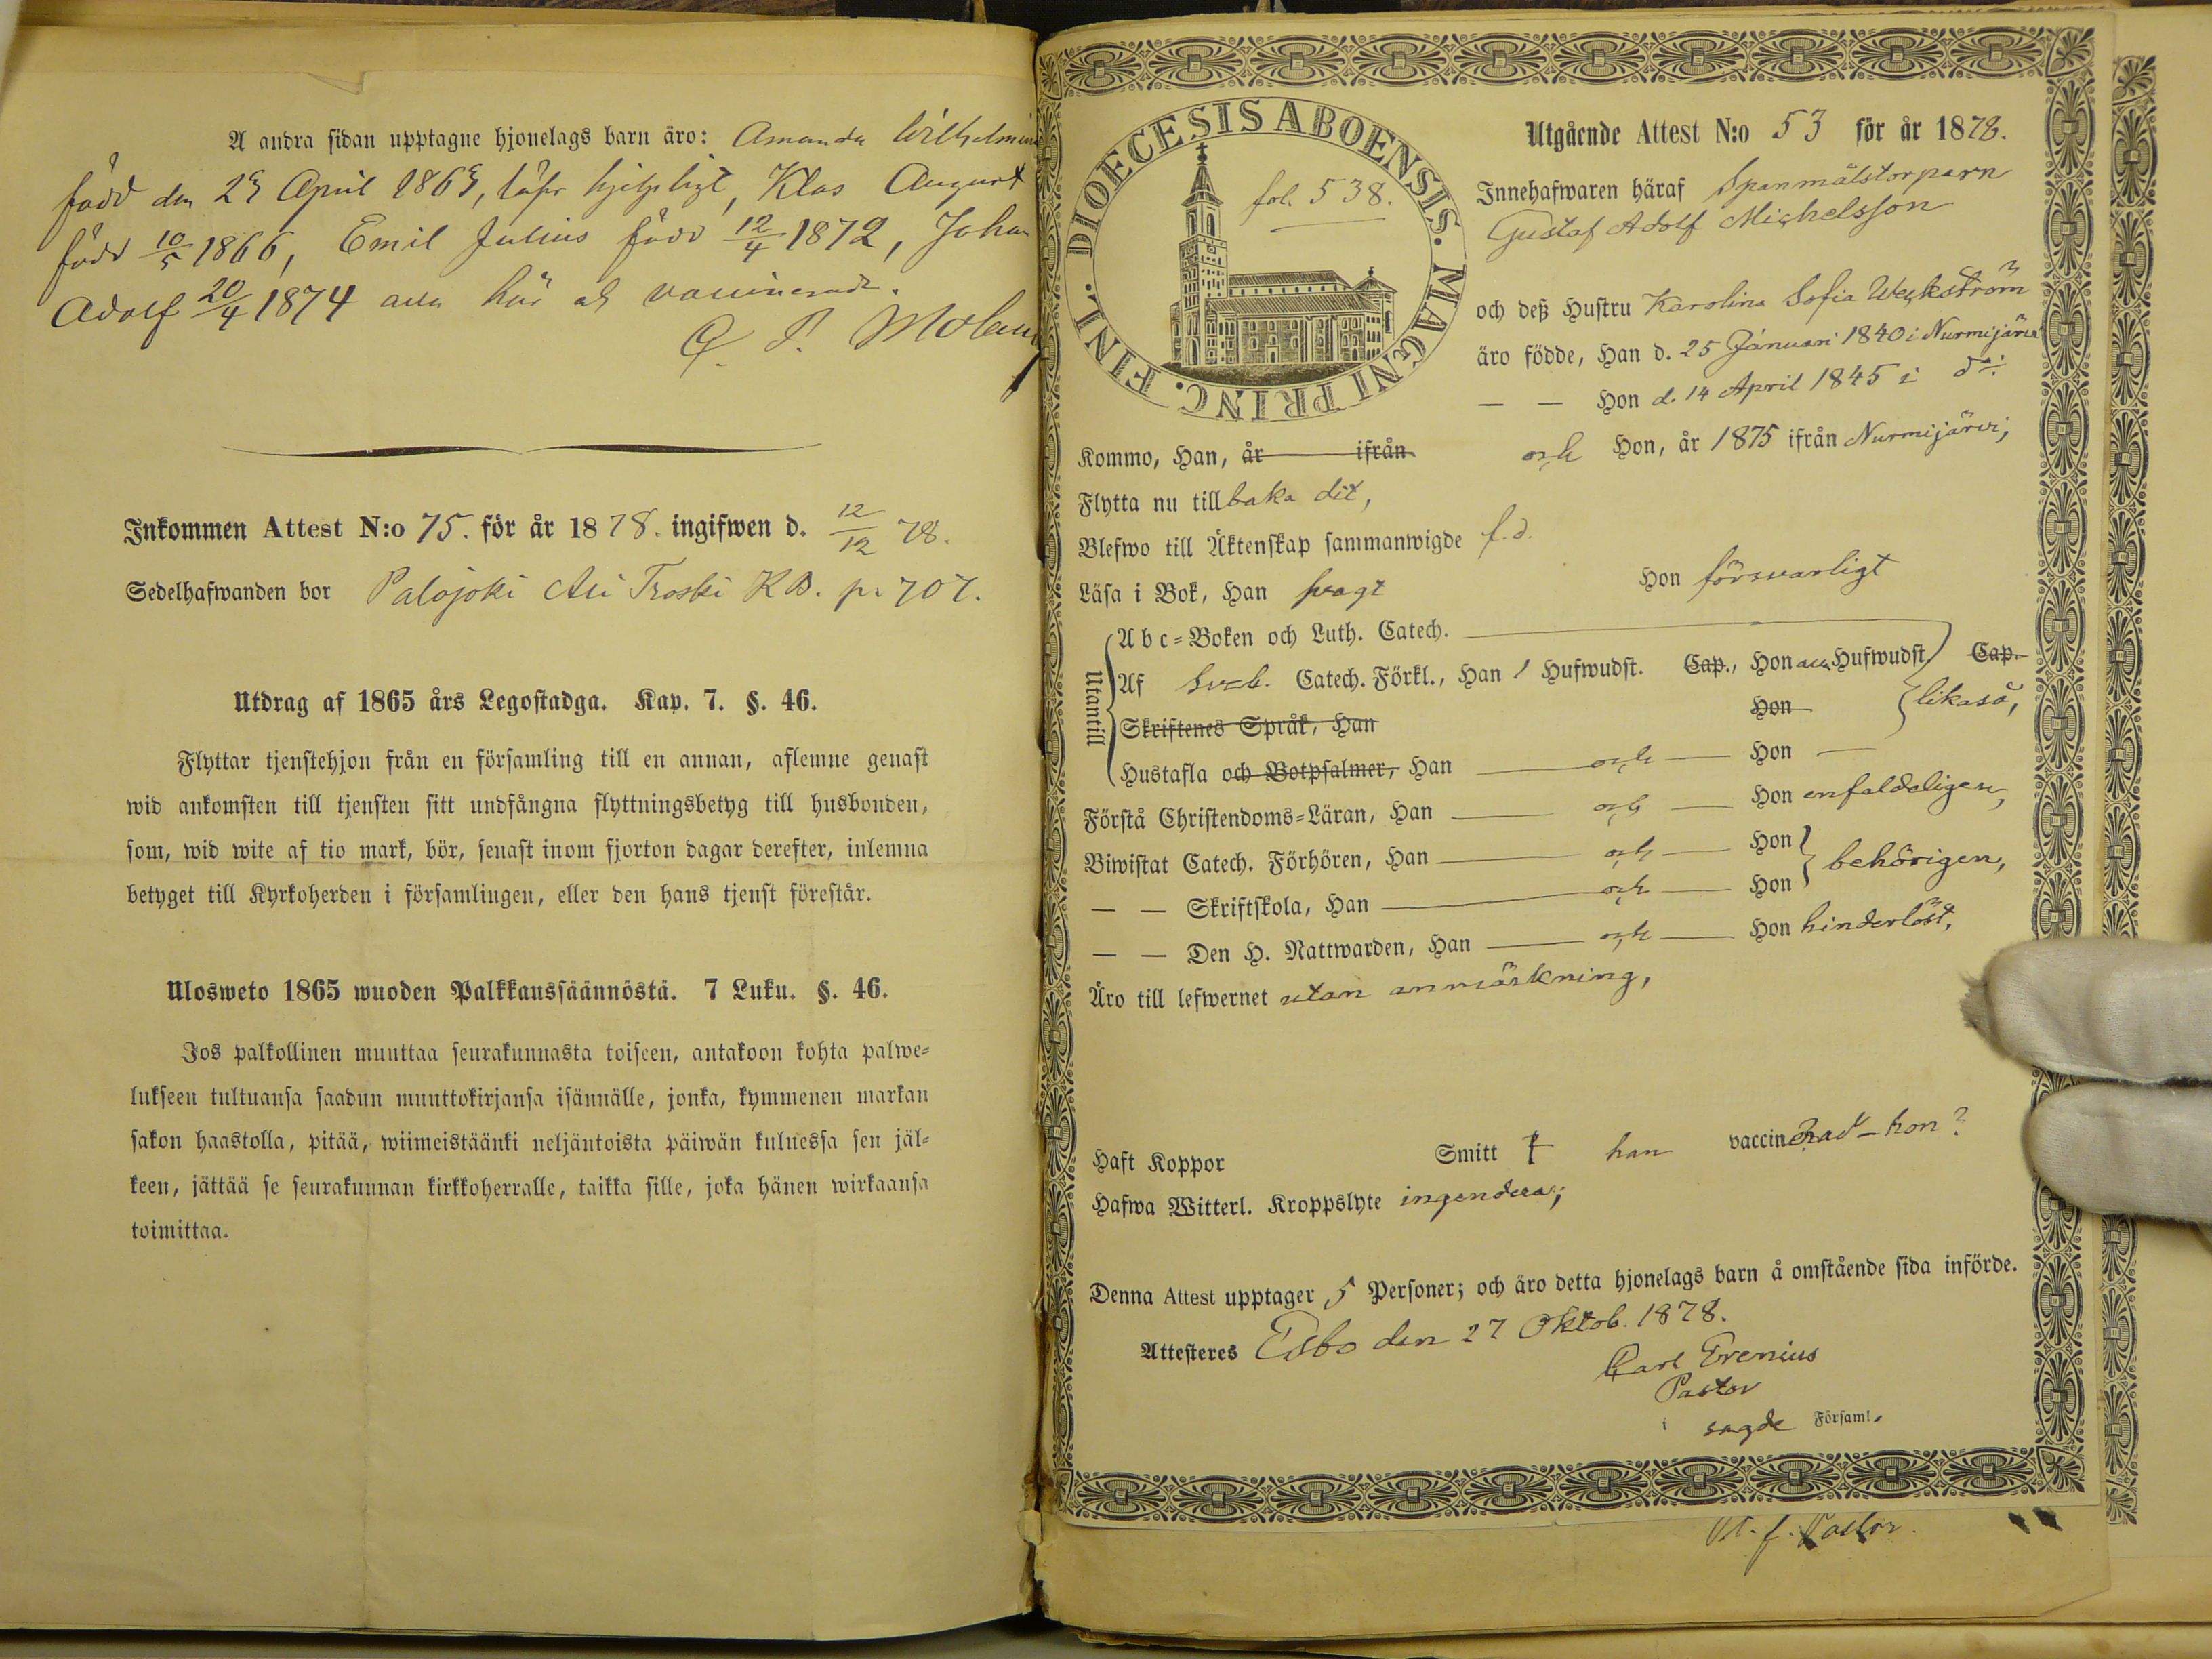 A andra sidan upptagne hjonelags barn äro: Amanda Wilhelmin
född den 29 April 1863, läser hjelpligt, Klas August
född 10/5 1866, Emil Julius född 12/4 1872, Johan
Adolf 20/4 1874 alla här ok vaccinerade.
Molan
Inkommen Attest N:o 75. för år 1878. ingifwen d. 12/12 78.
Sedelhafwanden bor Palojoki Ali Troski KB. p. 707.
Utdrag af 1865 års Legostadga. Kap. 7. §. 46.
Flyttar tjenstehjon från en församling till en annan, aflemne genast
wid ankomsten till tjensten sitt undfångna flyttningsbetyg till husbonden,
som, wid wite af tio mark, bör, senast inom fjorton dagar derefter, inlemna
betyget till Kyrkoherden i församlingen, eller den hans tjenst förestår.
Ulosweto 1865 wuoden Palkkaussäännöstä. 7 Luku. §. 46.
Jos palkollinen muuttaa seurakunnasta toiseen, antakoon kohta palwe=
lukseen tultuansa saadun muuttokirjansa isännälle, jonka, kymmenen markan
sakon haastolla, pitää, wiimeistäänki neljäntoista päiwän kuluessa sen jäl=
keen, jättää se seurakunnan kirkkoherralle, taikka sille, joka hänen wirkaansa
toimittaa.
DIOECESIS ABOENSIS. MAGNI PRINC. FINL.
fol. 538.
Utgående Attest N:o 53 för år 1878.
Innehafwaren häraf Spanmålstorparn
Gustaf Adolf Michelsson
och deß Hustru Karolina Sofia Weckström
äro födde, Han d. 25 Januari 1840 i Nurmijärvi
— — Hon d. 14 April 1845 i d:o.
Kommo, Han, år ifrån och Hon, år 1875 ifrån Nurmijärvi,
Flytta nu tillbaka dit,
Blefwo till Äktenskap sammanwigde f.d.
Läsa i Bok, Han svagt Hon försvarligt
Utantill
Abc=Boken och Luth. Catech.
Af Sveb. Catech. Förkl., Han 1 Hufwudst. Cap., Hon alla Hufwudst. Cap.
Skriftenes Språk, Han Hon likaså,
Hustafla och Botpsalmer, Han och Hon
Förstå Christendoms=Läran, Han och Hon enfaldeligen,
Biwistat Catech. Förhören, Han och Hon behörigen,
— — Skriftskola, Han och Hon
— — Den H. Nattwarden, Han och Hon hinderlöst,
Äro till lefwernet utan anmärkning,
Haft Koppor Smitt † han vaccinerad – hon?
Hafwa Witterl. Kroppslyte ingendera;
Denna Attest upptager 5 Personer; och äro detta hjonelags barn å omstående sida införde.
Attesteres Esbo den 27 Oktob. 1878.
Carl Grenius
Pastor
i sagde Församl.
V. f. Pastor.